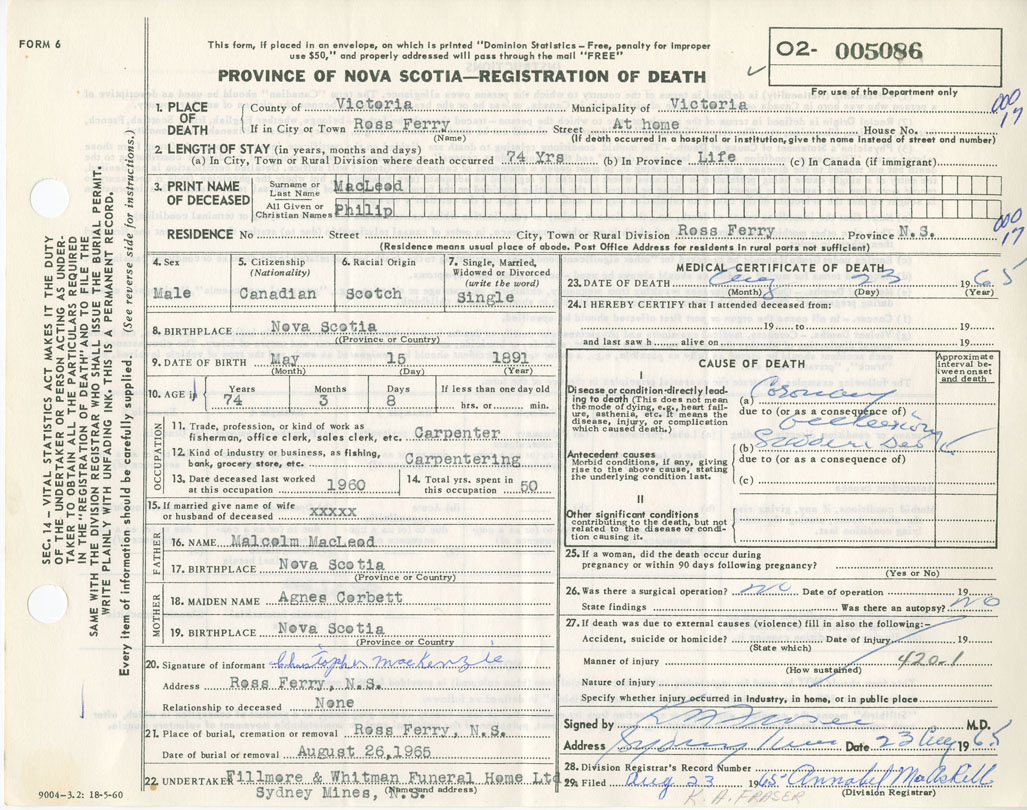 FORM 6
This form, if placed in an envelope, on which is printed "Dominion Statistics – Free, penalty for improper
use $50," and properly addressed will pass through the mail "FREE"
PROVINCE OF NOVA SCOTIA—REGISTRATION OF DEATH
O2- 005086
For use of the Department only
1. PLACE OF DEATH
County of Victoria Municipality of Victoria
000
17
If in City or Town Ross Ferry Street At home House No.
(Name) (If death occurred in a hospital or institution, give the name instead of street and number)
2. LENGTH OF STAY (in years, months and days)
(a) In City, Town or Rural Division where death occurred 74 Yrs (b) In Province Life (c) In Canada (if immigrant)
3. PRINT NAME OF DECEASED
Surname or Last Name MacLeod
All Given or Christian Names Philip
000
17
RESIDENCE No Street City, Town or Rural Division Ross Ferry Province N.S.
(Residence means usual place of abode. Post Office Address for residents in rural parts not sufficient)
4. Sex
Male
5. Citizenship
(Nationality)
Canadian
6. Racial Origin
Scotch
7. Single, Married,
Widowed or Divorced
(write the word)
Single
8. BIRTHPLACE Nova Scotia
(Province or Country)
9. DATE OF BIRTH May 15 1891
(Month) (Day) (Year)
10. AGE Years Months Days If less than one day old
74 3 8 hrs. or min.
OCCUPATION
11. Trade, profession, or kind of work as
fisherman, office clerk, sales clerk, etc. Carpenter
12. Kind of industry or business, as fishing,
bank, grocery store, etc. Carpentering
13. Date deceased last worked
at this occupation 1960
14. Total yrs. spent in
this occupation 50
15. If married give name of wife
or husband of deceased xxxxx
FATHER
16. NAME Malcolm MacLeod
17. BIRTHPLACE Nova Scotia
(Province or Country)
MOTHER
18. MAIDEN NAME Agnes Corbett
19. BIRTHPLACE Nova Scotia
(Province or Country
20. Signature of informant Christopher MacKenzie
Address Ross Ferry, N.S.
Relationship to deceased None
21. Place of burial, cremation or removal Ross Ferry, N.S.
Date of burial or removal August 26,1965
22. UNDERTAKER Fillmore & Whitman Funeral Home Ltd
Sydney Mines, N.S.
(Name and address)
MEDICAL CERTIFICATE OF DEATH
23. DATE OF DEATH Aug 23 1965
(Month) (Day) (Year)
24. I HEREBY CERTIFY that I attended deceased from:
19 to 19
and last saw h alive on 19
CAUSE OF DEATH
Approximate
interval between
onset
and death
I
Disease or condition directly leading
to death (This does not mean
the mode of dying, e.g., heart failure,
asthenia, etc. It means the
disease, injury, or complication
which caused death.)
(a) Coronary
due to (or as a consequence of)
occlusion
(b)
due to (or as a consequence of)
(c)
Antecedent causes
Morbid conditions, if any, giving
rise to the above cause, stating
the underlying condition last.
II
Other significant conditions
contributing to the death, but not
related to the disease or condition
causing it.
25. If a woman, did the death occur during
pregnancy or within 90 days following pregnancy?
(Yes or No)
26. Was there a surgical operation? no Date of operation 19
State findings Was there an autopsy? No
27. If death was due to external causes (violence) fill in also the following:–
Accident, suicide or homicide? Date of injury 19
(State which)
Manner of injury 420-1
(How sustained)
Nature of injury
Specify whether injury occurred in Industry, in home, or in public place
Signed by M.D.
Address Sydney Mines Date 23 Aug 1965
28. Division Registrar's Record Number
29. Filed Aug 23 1965 Annabel MacAskill
(Division Registrar)
K. A. FRASER
SEC. 14 – VITAL STATISTICS ACT MAKES IT THE DUTY
OF THE UNDERTAKER OR PERSON ACTING AS UNDER-
TAKER TO OBTAIN ALL THE PARTICULARS REQUIRED
IN THE "REGISTRATION OF DEATH" AND TO FILE THE
SAME WITH THE DIVISION REGISTRAR WHO SHALL ISSUE THE BURIAL PERMIT.
WRITE PLAINLY WITH UNFADING INK. THIS IS A PERMANENT RECORD.
Every item of information should be carefully supplied. (See reverse side for instructions.)
9004–3.2: 18-5-60